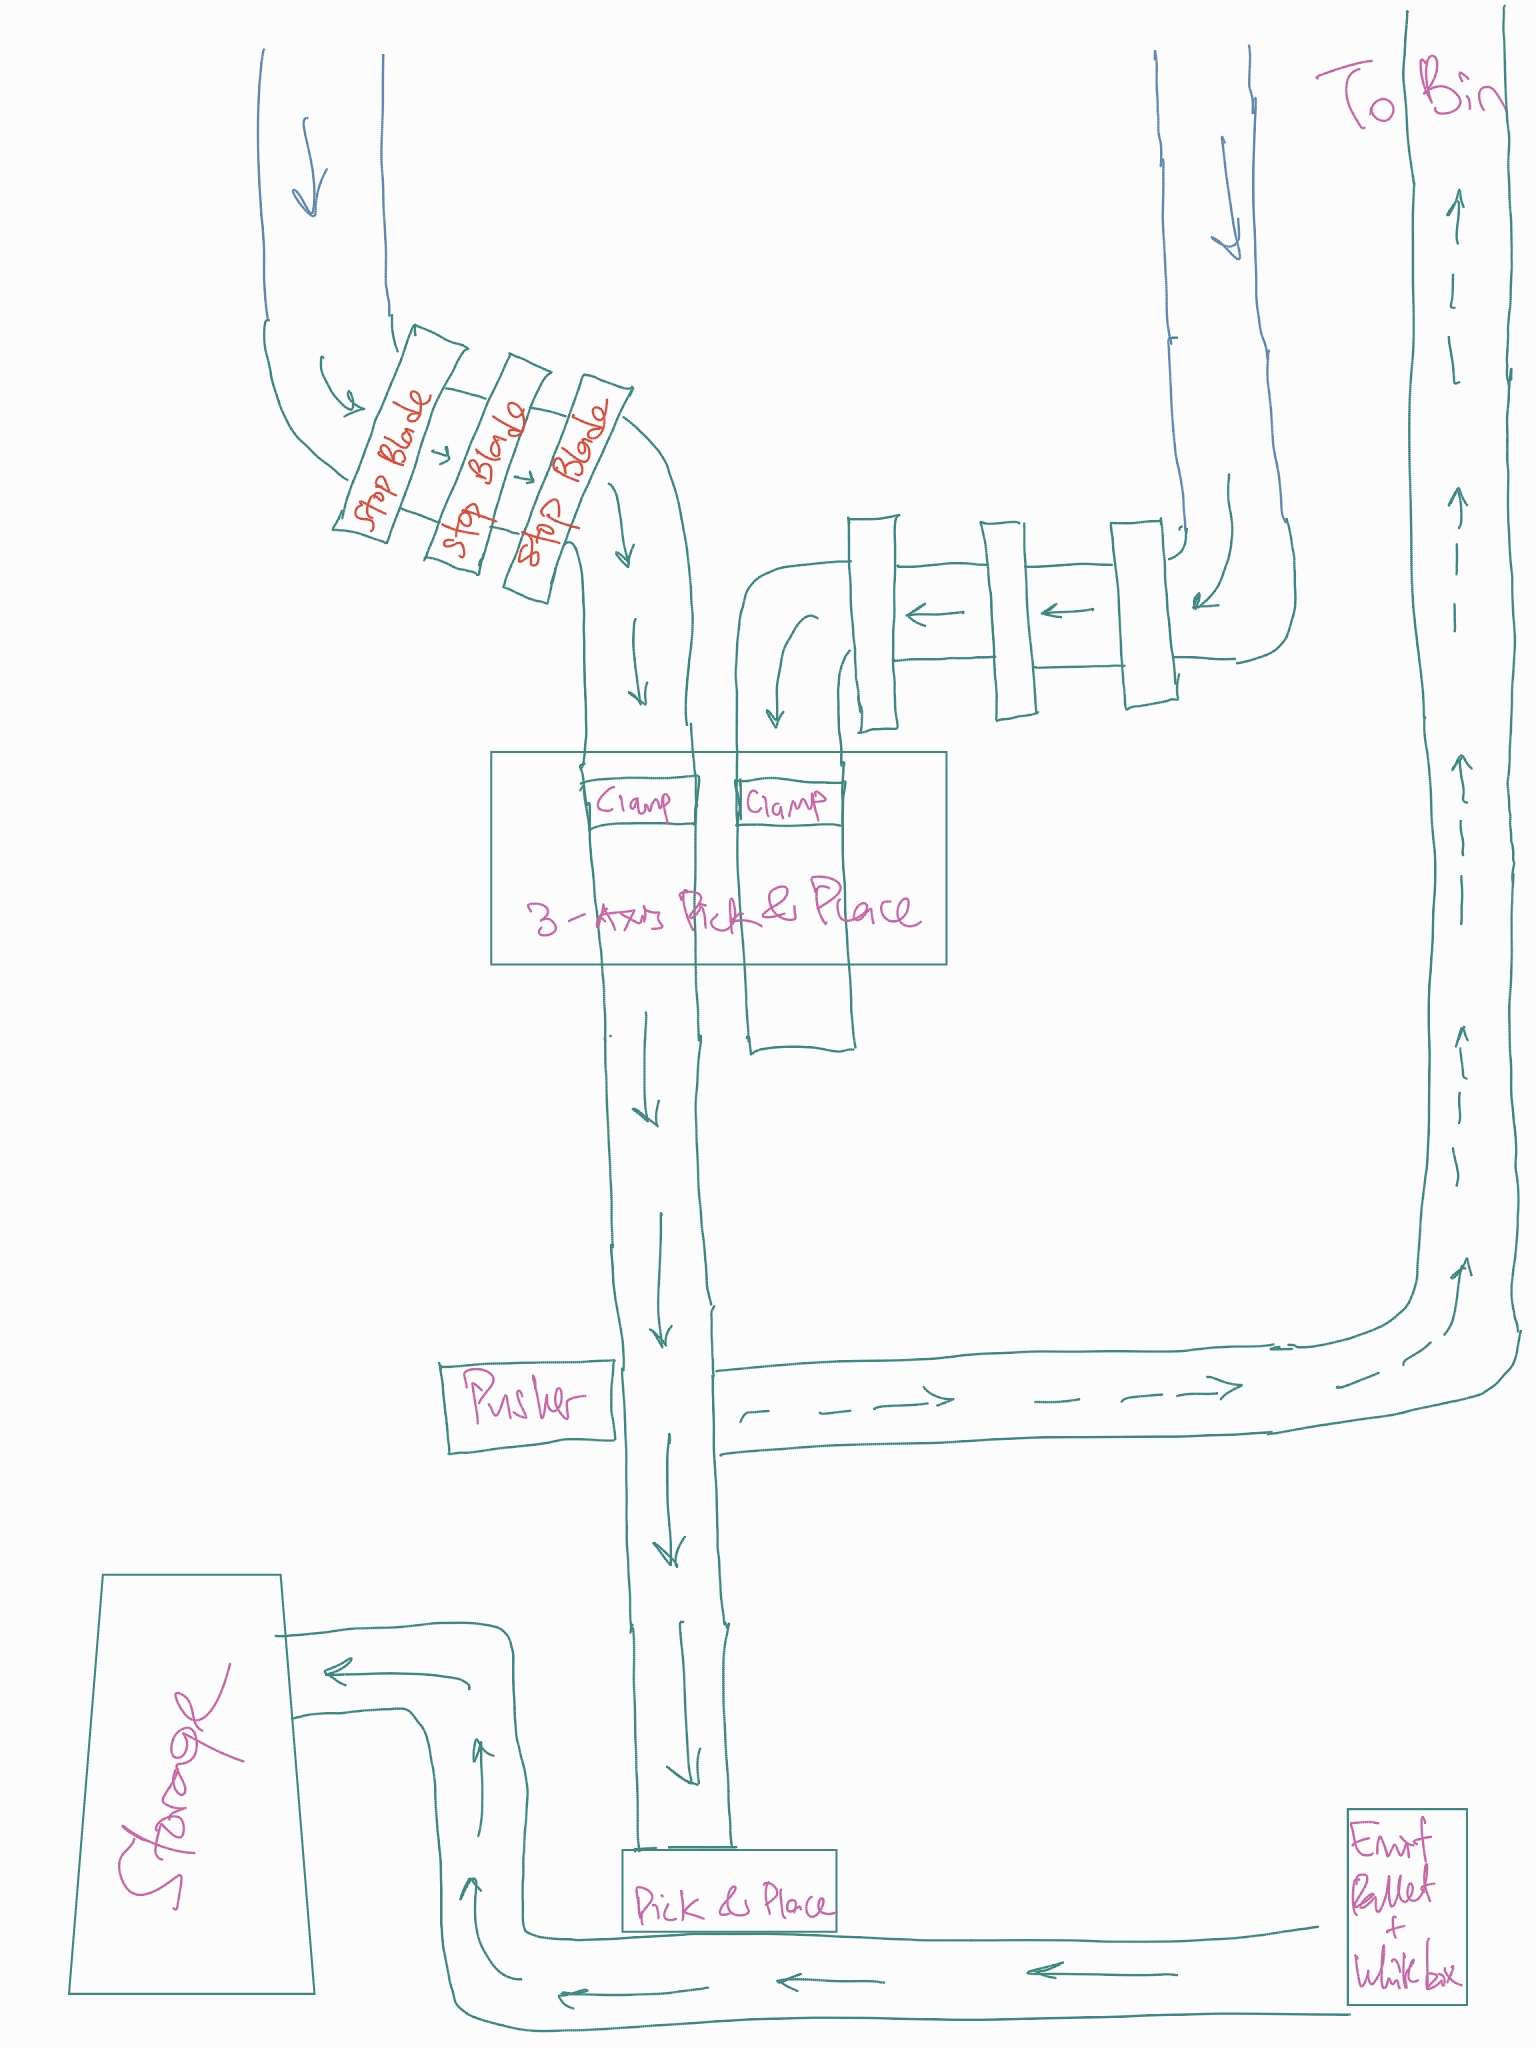 To Bin
Stop Blade
Stop Blade
Stop Blade
Clamp
Clamp
3-Axis Pick & Place
Pusher
Storage
Pick & Place
Emit
Pallet
+
White box